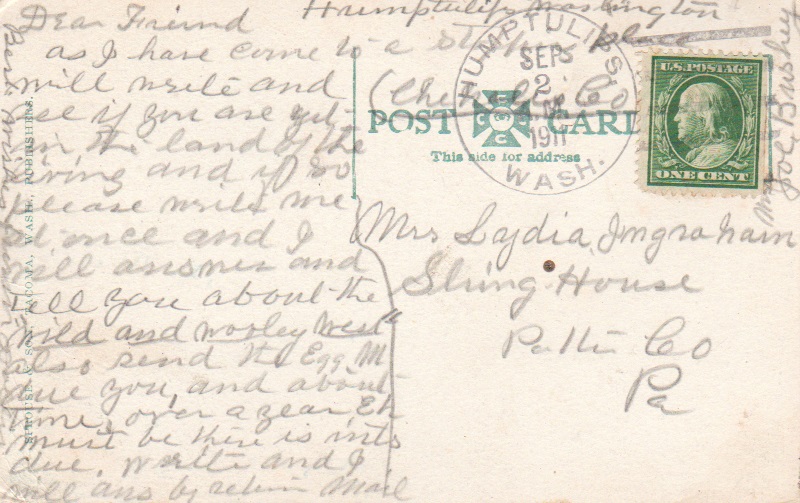 Humptulips Washington
Dear Friend
as I have come to a stopping place
will write and (Chehalis Co)
see if you are yet
in the land of the
living and if so
please write me
at once and I
will answer and
tell you about the
"wild and wooley West"
also send the Egg M
due you, and about
time, over a year, Eh
must be there is
due. Write and I
will ans by return Mail
HUMPTULIPS
SEP
2
1911
WASH.
U.S. POSTAGE
ONE CENT
POST CARD
This side for address
Mrs Lydia Ingraham
Shing House
Potter Co
Pa
SPROUSE & SON, TACOMA, WASH., PUBLISHERS.